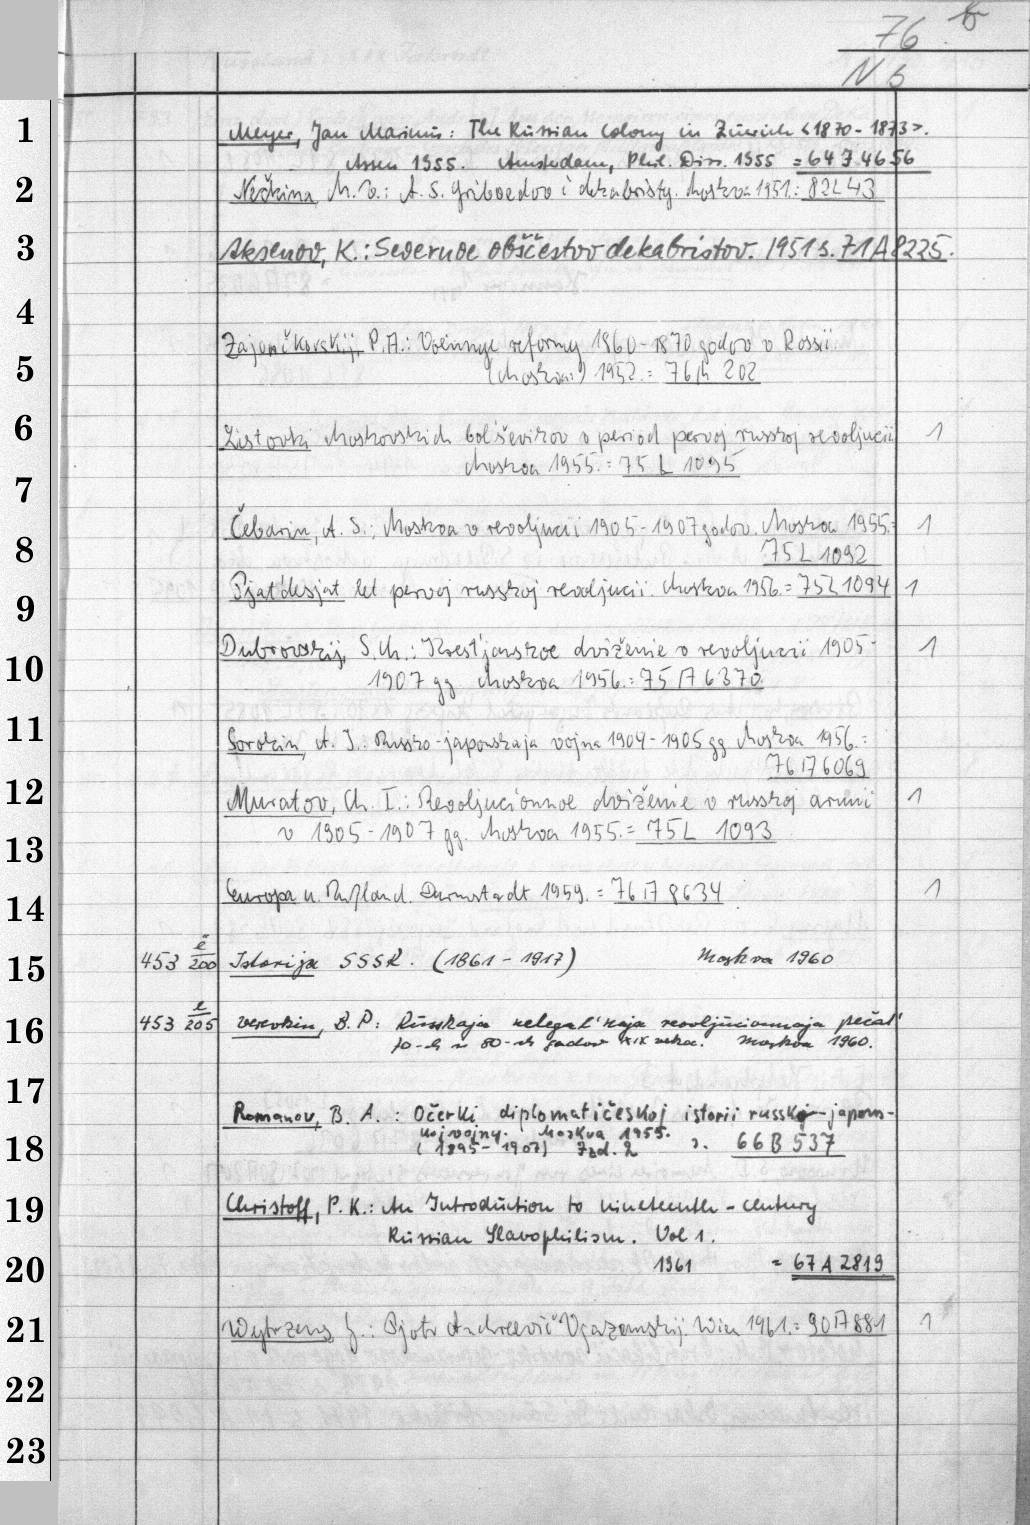 76 b
N 5
1 Meyer, Jan Marinus: The Russian Colony in Zürich <1870-1873>.
Assen 1955. Amsterdam, Phil. Diss. 1955 = 6474656
2 Nečkina M. V.: A. S. Griboedov i dekabristy. Moskva 1951.: 82L43
3 Aksenov, K.: Severnoe obščestvo dekabristov. 1951 s. 71A8225.
4
Zajončkovskij, P. A.: Voennye reformy 1860-1870 godov v Rossii
5 (Moskva) 1952. = 76 202
6 Listovki Moskovskich bol'ševikov v period pervoj russkoj revoljucii 1
Moskva 1955. = 75 L 1095
7
Čebarin, A. S.: Moskva v revoljucii 1905-1907 godov. Moskva 1955.= 1
8 75L1092
9 Pjat'desjat let pervoj russkoj revoljucii. Moskva 1956. = 75L1094 1
Dubrovskij, S. M.: Krest'janskoe dviženie v revoljucii 1905- 1
10 1907 gg Moskva 1956.= 75 A 6370
11 Sorokin, A. I.: Russko-japonskaja vojna 1904-1905 gg Moskva 1956.=
76A6069
12 Muratov, Ch. I.: Revoljucionnoe dviženie v russkoj armii 1
13 v 1905-1907 gg. Moskva 1955.= 75L 1093
14 Europa u. Rußland. Darmstadt 1959. = 76 A 8634 1
15 453 ë/200 Istorija SSSR. (1861-1917) Moskva 1960
16 453 e/205 Verevkin, B. P: Russkaja nelegal'naja revoljucionnaja pečat'
70-ch i 80-ch godov XIX veka. Moskva 1960.
17
Romanov, B. A.: Očerki diplomatičeskoj istorii russko-japons-
koj vojny. Moskva 1955.
18 (1895-1907) Izd. 2 s. 66B537
19 Christoff, P. K.: An Introduction to nineteenth-century
Russian Slavophilism. Vol 1.
20 1961 = 67A2819
21 Wytrzens G.: Pjotr Andreevič Vjazemskij. Wien 1961.= 90A881 1
22
23